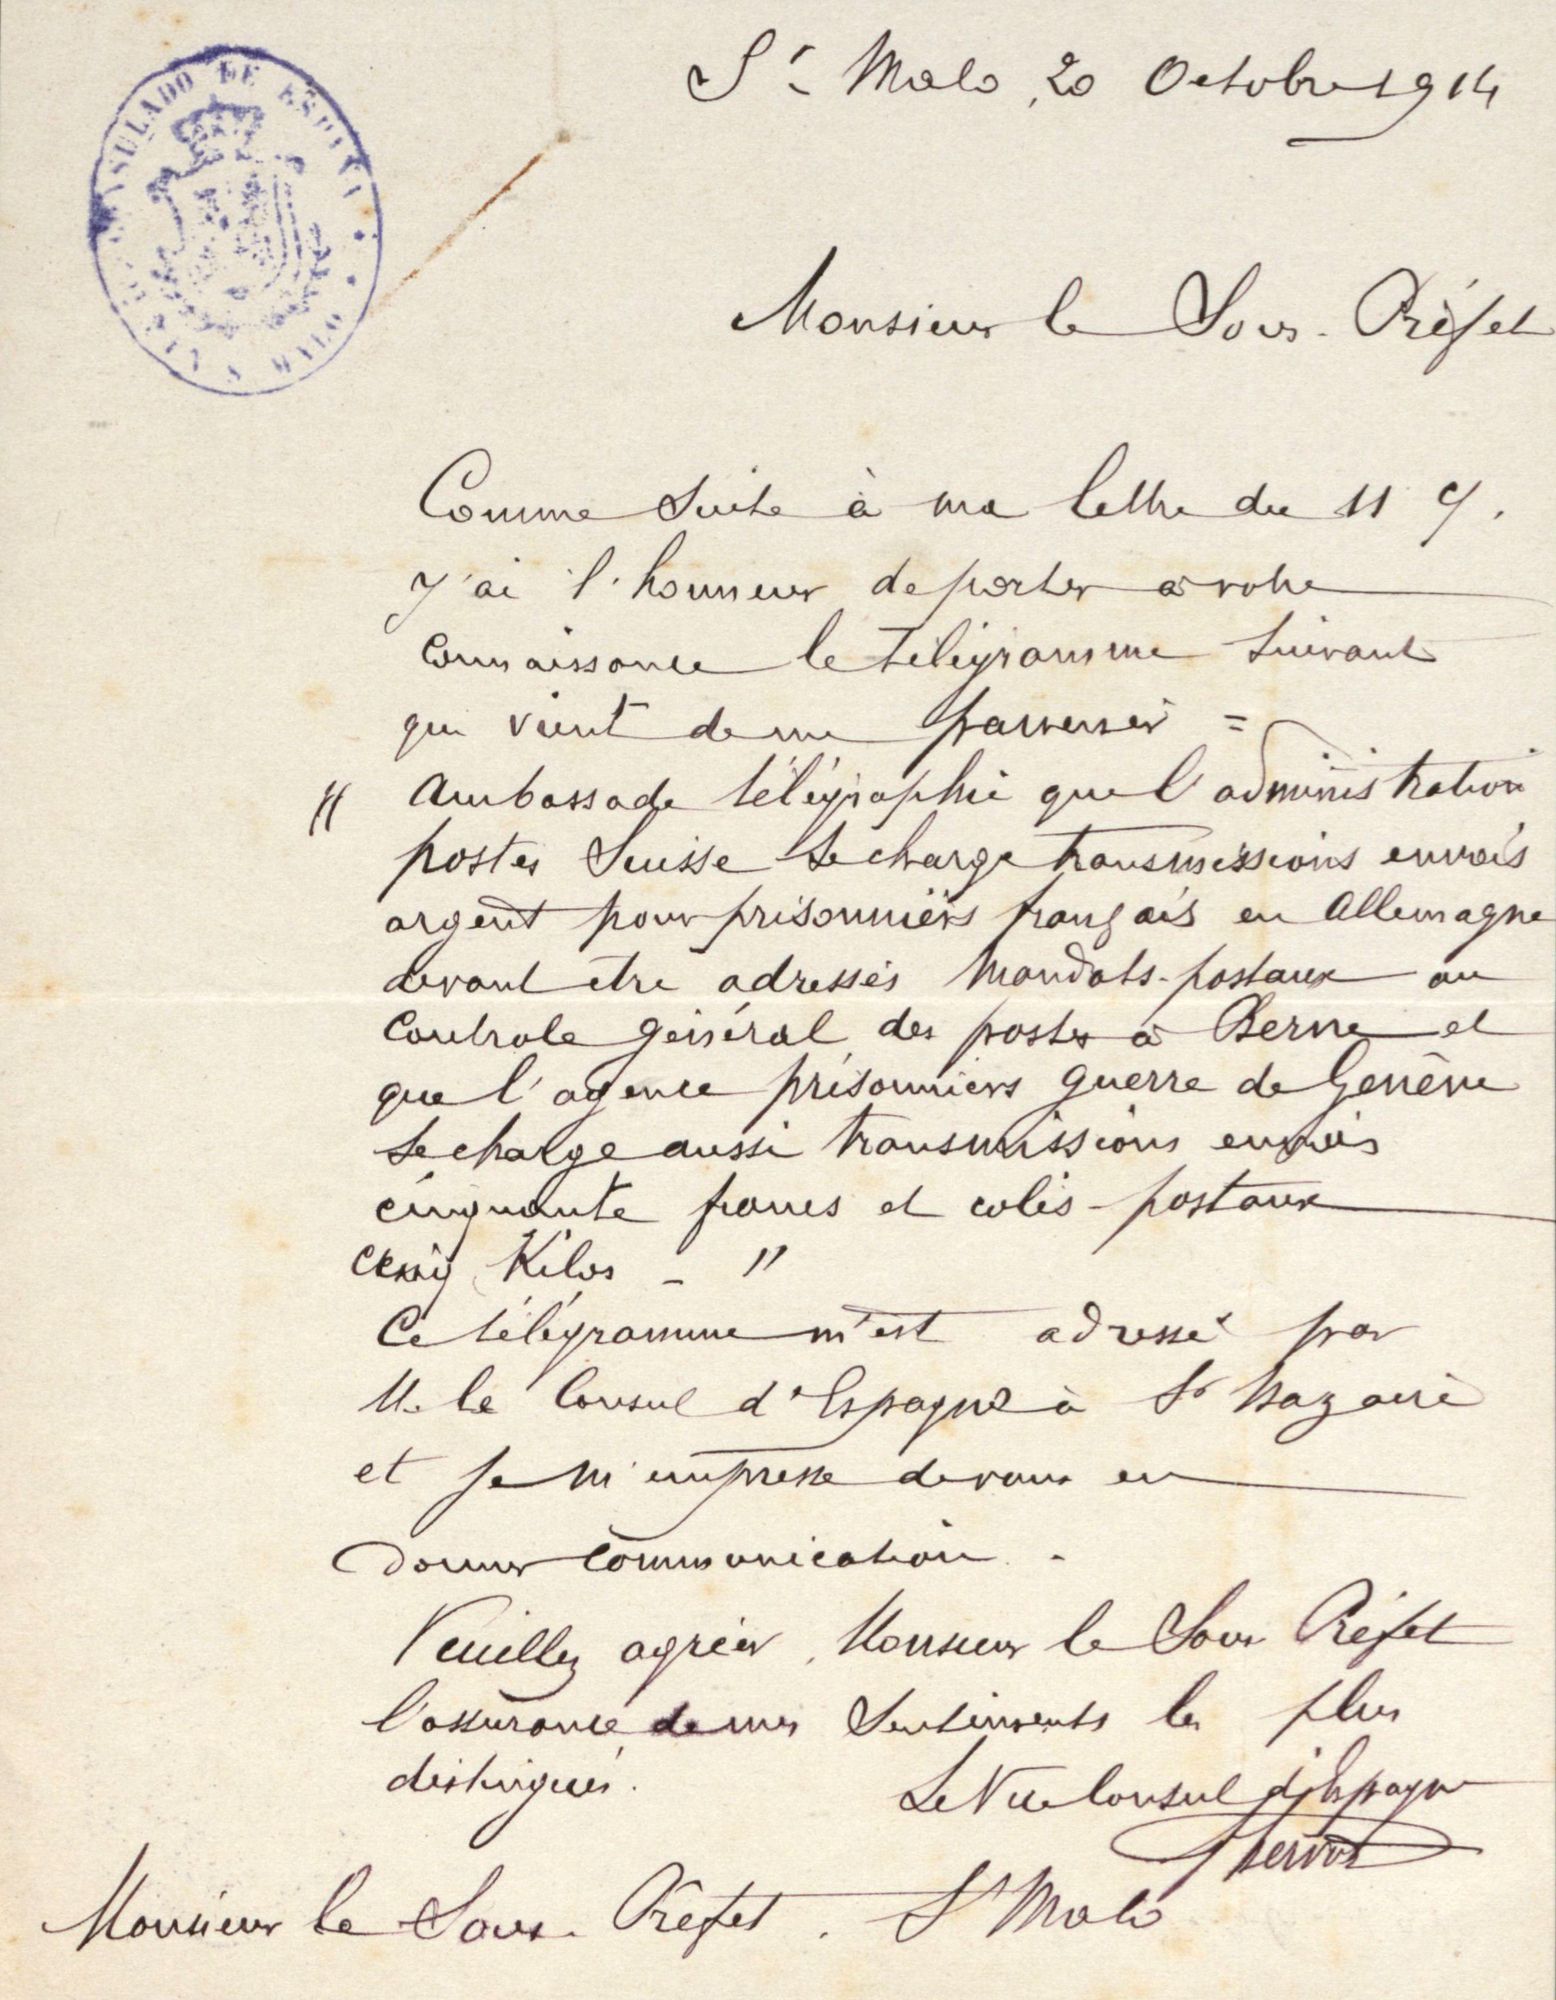 VICE CONSULADO DE ESPAÑA
S. MALO
St Malo, 20 Octobre 1914
Monsieur le Sous-Préfet
Comme suite à ma lettre du 11 ct.
J'ai l'honneur de porter à votre
connaissance le télégramme suivant
qui vient de me parvenir =
" Ambassade télégraphie que l'administration
postes Suisse se charge transmissions envois
argent pour prisonniers français en Allemagne
devant être adressés mandats-postaux au
Controle général des postes à Berne et
que l'agence prisonniers guerre de Genève
se charge aussi transmissions envois
cinquante francs et colis-postaux
cinq Kilos - "
Ce télégramme m'est adressé par
M. le Consul d'Espagne à St Nazaire
et je m'empresse de vous en
donner communication.
Veuillez agréer, Monsieur le Sous Préfet
l'assurance de mes sentiments les plus
distingués.
Le Vice Consul d'Espagne
Monsieur le Sous-Préfet. St Malo